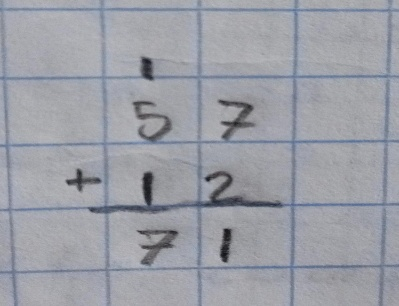 1
5 7
+ 1 2
7 1